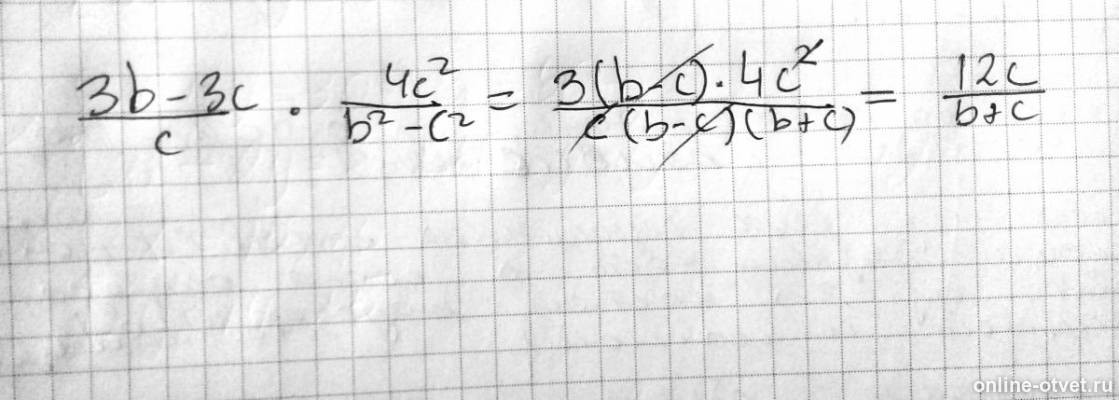 (3b - 3c)/c · 4c²/(b² - c²) = 3(b - c) · 4c²/(c(b - c)(b + c)) = 12c/(b + c)
online-otvet.ru